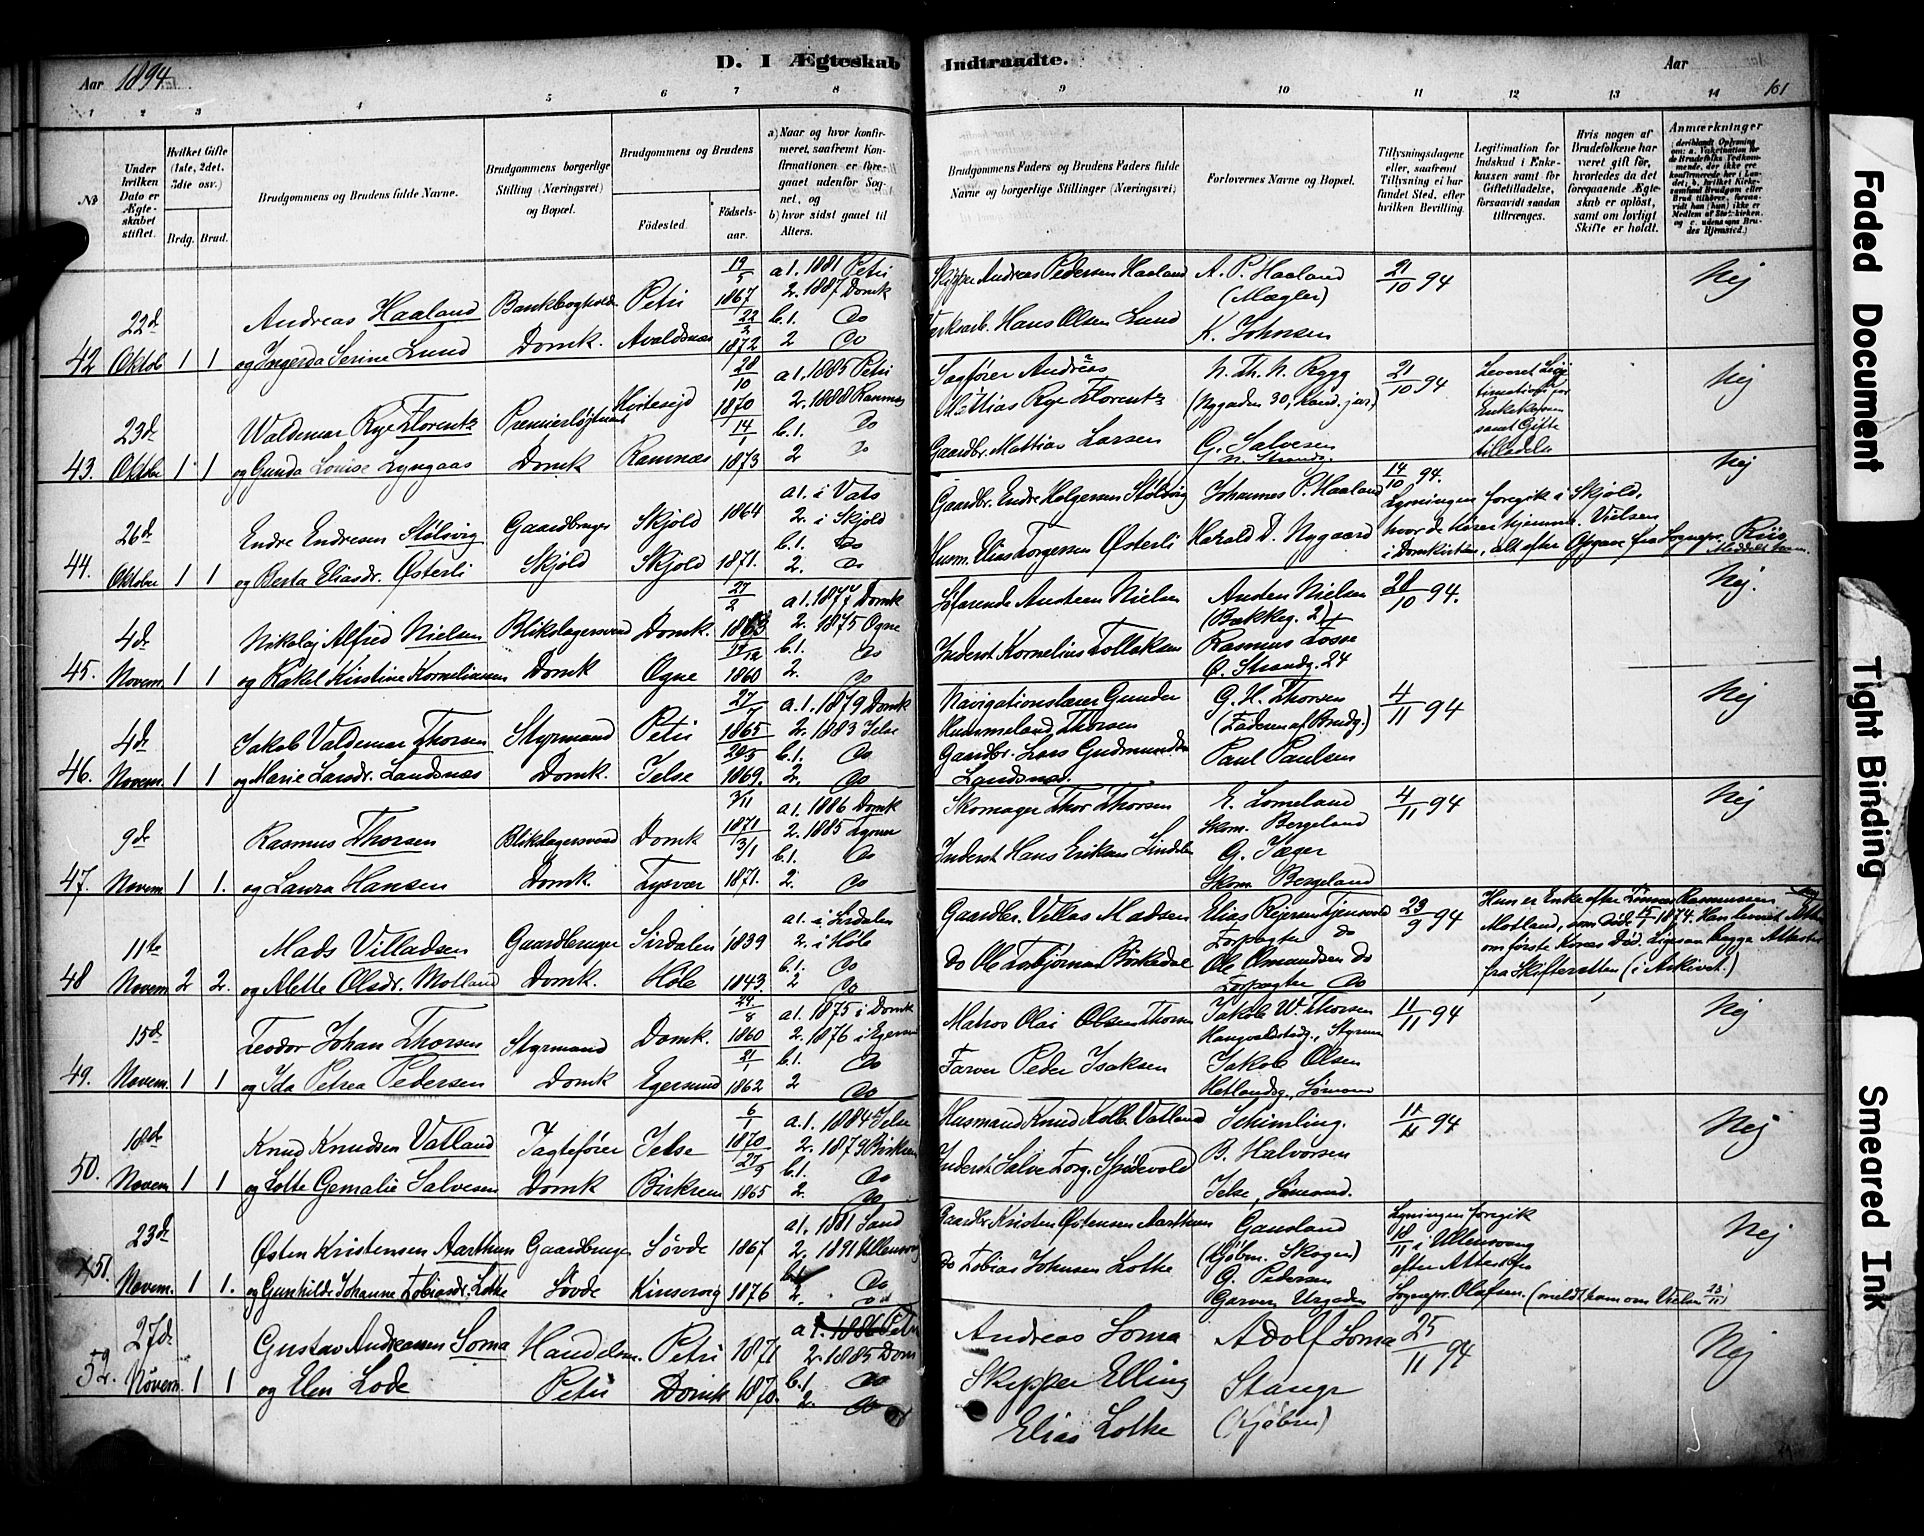 Aar 1894
D. I Ægteskab Indtraadte.
Aar
161
1 2 3 4 5 6 7 8 9 10 11 12 13 14
No
Under hvilken Dato er Ægteskabet stiftet.
Hvilket Gifte (1ste, 2det, 3dte osv.)
Brdg. Brud.
Brudgommens og Brudens fulde Navne.
Brudgommens borgerlige Stilling (Næringsvei) og Bopæl.
Brudgommens og Brudens
Fødested.
Fødsels-aar.
a) Naar og hvor konfirmeret, saafremt Konfirmationen er foregaaet udenfor Sognet, og
b) hvor sidst gaaet til Alters.
Brudgommens Faders og Brudens Faders fulde Navne og borgerlige Stillinger (Næringsvei).
Forlovernes Navne og Bopæl.
Tillysningsdagene eller, saafremt Tillysning ei har fundet Sted, efter hvilken Bevilling.
Legitimation for Indskud i Enkekassen samt for Giftetilladelse, forsaavidt saadan tiltrænges.
Hvis nogen af Brudefolkene har været gift før, hvorledes da det foregaaende Ægteskab er opløst, samt om lovligt Skifte er holdt.
Anmærkninger
42 22d Oktob 1 1
Andreas Haaland Bankbogholder Petri 19/5 1867 a 1. 1881 Petri
2. 1887 Domk
og Ingerda Serine Lund Domk. Avaldsnes 22/2 1872 b. 1. Do
2 Do
Skipper Andreas Pedersen Haaland A. P. Haaland 21/10 94 Nej
(Mægler)
Hans Olsen Lund K. Johnsen
43. 23d Oktober 1 1
Waldemar Rye Florentz Premierløjtnant Hvitesejd 28/10 1870 a 1. 1885 Petri
2. 1888 Ramnes
og Gunda Louise Lyngaas Domk Ramnæs 14/1 1873 b. 1. Do
2 Do
Sagfører Andreas N. Th. N. Rygg 21/10 94 Nej
Mattias Rye Florentz (Nygaden 30, kand. jur)
Gaardbr. Mattias Larsen G. Salvesen
N. Strandg.
Leveret Legitimation for Enkekassen samt Giftetilladelse
44. 26d Oktober 1 1
Endre Endresen Stølsvig Gaardbruger Skjold 1864 a 1. i Vats
2. i Skjold
og Berta Eliasdr. Østerli Skjold Skjold 1871. b. 1. Do
2. Do
Gaardbr. Endre Holgersen Stølsvig Johannes P. Haaland 14/10 94. Nej
Husm. Elias Torgersen Østerli Harald D. Nygaard
Lysningen foregik i Skjold, hvor de hører hjemme. Vielsen i Domkirken, alt efter Opgave fra Sognepr. Riis
45. 4d Novem. 1 1
Nikolaj Alfred Nielsen Blikslagersvend Domk. 27/2 1863 a 1. 1877 Domk
2. 1875 Ogne
og Rakel Kirstine Korneliussen Domk Ogne 1860 b. 1. Do
2. Do
Søfarende Andreas Nielsen Anders Nielsen 28/10 94. Nej.
(Bakkeg. 2)
Inderst Kornelius Tollaksen Rasmus Tosse
Ø. Strandg. 24
46. 4d Novem. 1 1
Jakob Valdemar Thorsen Styrmand Petri 27/7 1865 a. 1. 1879 Domk
2. 1883 Jelse
og Marie Larsdr. Landsnæs Domk. Jelse 20/5 1869. b. 1. Do
2. Do
Navigationslærer Gunder G. H. Thorsen 4/11 94 Nej
Hummeland Thorsen (Faderen af Brudg.)
Gaardbr. Lars Gudmundsen Paul Paulsen
Landsnæs.
47. 9de Novem. 1 1.
Rasmus Thorsen Blikslagersvend Domk 3/11 1871 a 1. 1886 Domk
2. 1885
og Laura Hansen Domk. Tysvær 13/1 1871. b. 1. Do
2. Do
Skomager Thor Thorsen E. Lomeland 4/11 94 Nej
Skom. Bergeland
Inderst Hans Eriksen Lindalen G. Jæger
Skom. Bergeland
48 11te Novem 2 2.
Mads Villadsen Gaardbruger Sirdalen 1839 a 1. i Sirdalen
2. i Høle
og Alette Olsdr. Motland Domk. Høle 1843. b. 1. Do
2 Do
Gaardbr. Villas Madsen Elias Rejersen Tjensvold 23/9 94
Forpagter do
do Ole Torbjørnsen Birkedal Ole Omandsen do
Forpagter do
Hun er Enke efter Tønnes Rasmussen Motland, som døde 1874. Han leveret Attest om første Kones Død. Ligesan begge Attester fra Skifteretten (i Arkivet.)
Nej
49. 15d Novem. 1 1
Teodor Johan Thorsen Styrmand Domk. 24/8 1860 a 1. 1875 i Domk
2. 1876 i Egersund
og Ida Petrea Pedersen Domk Egersund 21/1 1862 b. 1. Do
2 Do
Matros Olai Olsen Thorsen Jakob W. Thorsen 11/11 94 Nej
Haugvaldstadg., Styrm
Farver Peder Isaksen Jakob Olsen
Hetlandsg., Sømand
50. 18de Novem 1 1
Knud Knudsen Vatland Jagtefører Jelse 6/1 1870 a. 1. 1884 Jelse
2. 1879 Birkrem
og Lotte Gemalie Salvesen Domk Birkrem 27/9 1865 b. 1. Do
2. Do
Husmand Knud Kolb. Vatland Schimling. 11/11 94 Nej
Inderst Salve Torg. Spidevold B. Halvorsen
Jelse, Sømand.
51. 23d Novem. 1 1.
Østen Kristensen Aarthun Gaardbruger Søvde 1867 a 1. 1881 Sand
2. 1891 Ullensvang
og Gunhilde Johanne Tobiasdr. Lothe Søvde Kinservig 1876 b. 1. Do
2. Do
Gaardbr Kristen Østensen Aarthun Gausland Nej
(Kjøbm. Skogen)
do Tobias Johnsen Lothe G. Pedersen
Garver, Urgaden
Lysningen foregik 18/11 i Ullensvang efter Attest fra Sognepr. Olafsen. (meldt ham om Vielsen 23/11)
52. 27de Novem. 1 1
Gustav Andreassen Soma Handelsm. Petri 1871 a 1. 1886 Petri
2. 1885 Dom
og Elen Lode Petri Domk 1870. b. 1 Do
2. Do
Andreas Soma Adolf Soma 25/11 94 Nej
Skipper Elling Stange
Elias Lothe (Kjøbm)
Faded Document
Tight Binding
Smeared Ink